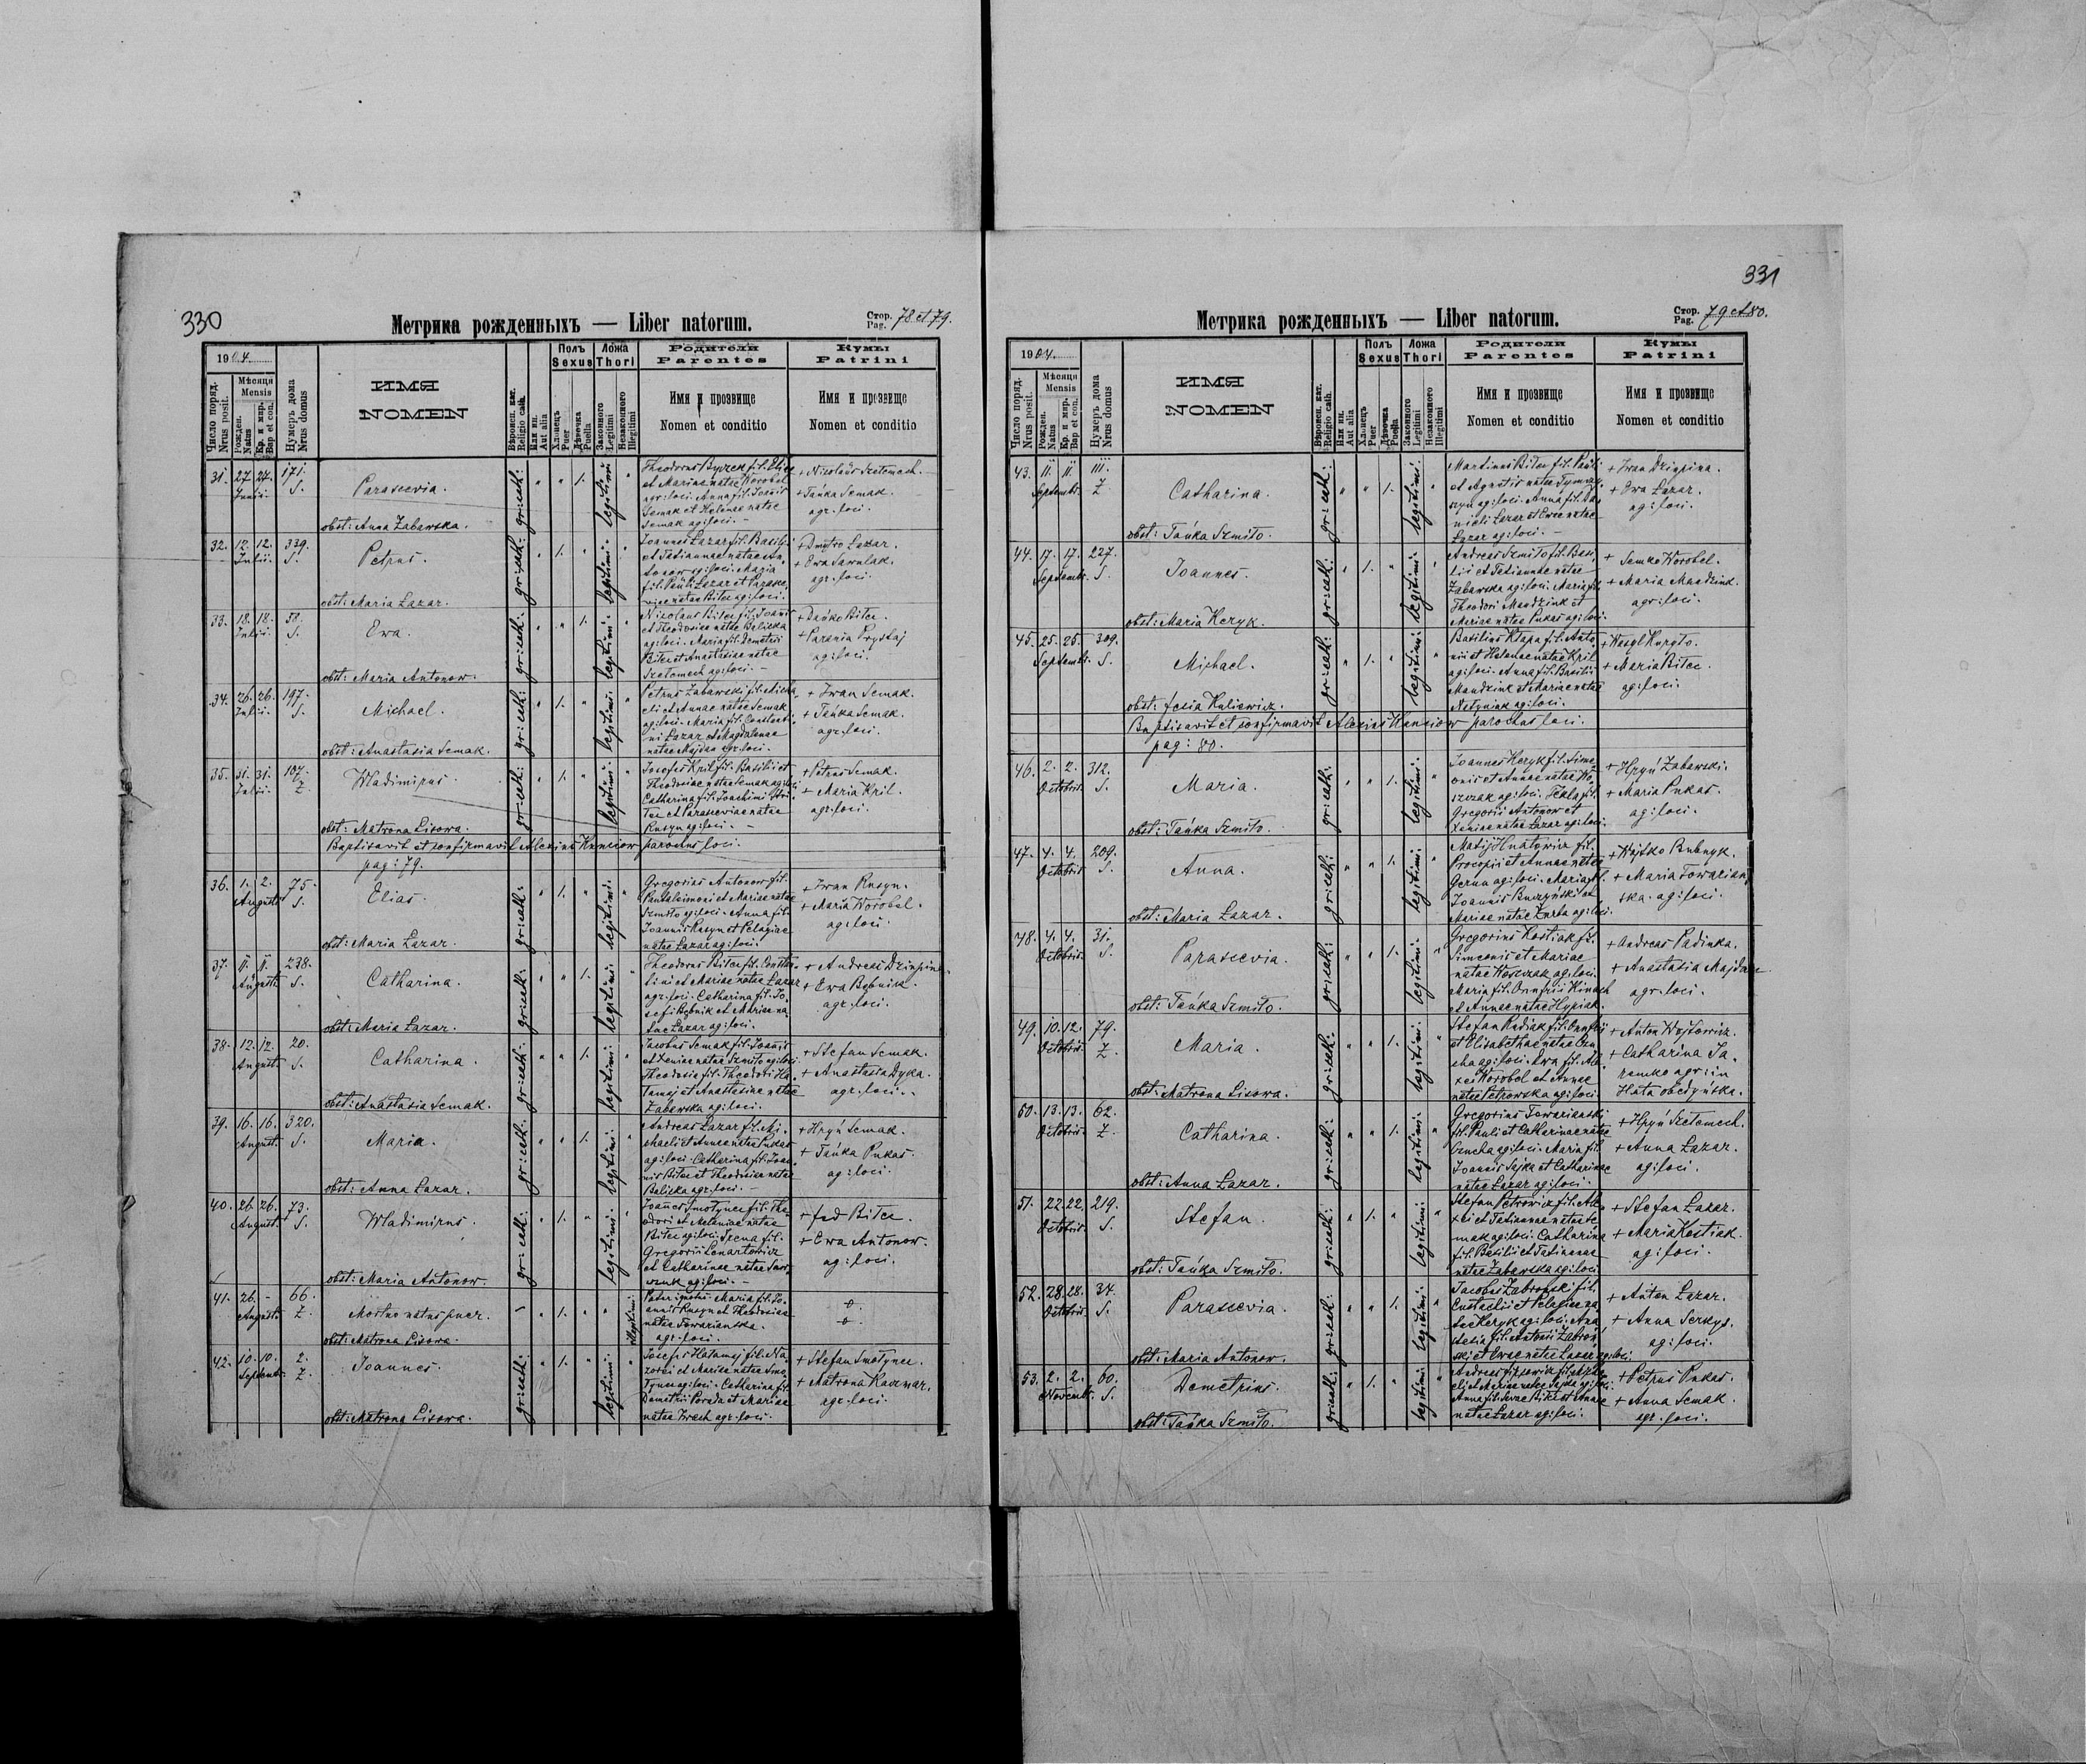 330
Метрика рожденныхъ — Liber natorum.
Стор.
Pag. 78 et 79.
1904.
Число поряд.
Nrus posit.
Мѣсяця
Mensis
Рожден.
Natus
Кр. и мир.
Bap et con.
Нумеръ дома
Nrus domus
ИМЯ
NOMEN
Вѣроисп. кат.
Religio cath.
Или ин.
Aut alia
Полъ
Sexus
Хлопець
Puer
Дѣвочка
Puella
Ложа
Thori
Законного
Legitimi
Незаконного
Illegitimi
Родители
Parentes
Имя и прозвище
Nomen et conditio
Кумы
Patrini
Имя и прозвище
Nomen et conditio
31. 27. 27. 171.
S.
Parascevia.
obst: Anna Zabawska.
gr: cath:
legitimi
et Mariae natae Worobel
agr: loci. Anna fil. Joannis
Semak et Helenae natae
Semak ag: loci. —
+ Nicolaus Szelemech.
+ Tańka Semak.
agr. loci.
32. 12. 12. 339.
Julii. S.
Petrus.
obst: Maria Lazar.
gr: cath:
legitimi
Joannes Lazar fil. Basilii
fil. Pauli Lazar et Parasce-
viae natae Bilec ag: loci.
+ Dmytro Lazar.
+ Ewa Sawulak.
agr. loci.
33. 18. 18. 58.
Julii. S.
Ewa.
obst: Maria Antonow.
gr: cath:
legitimi
Nicolaus Bilec fil. Joannis
et Theodosiae natae Belicka
ag: loci. Maria fil. Demetrii
Bilec et Anastasiae natae
Szelemech ag: loci. —
+ Dańko Bilec.
+ Parania Prystaj
ag: loci.
34. 26. 26. 197.
Julii. S.
Michael.
obst: Anastasia Semak.
gr: cath:
legitimi
Petrus Zabawski fil. Micha-
elis et Annae natae Semak
ag: loci. Maria fil. Constanti-
ni Lazar et Magdalenae
natae Majdan agr. loci.
+ Iwan Semak.
+ Tańka Semak.
agr. loci.
35. 31. 31. 107.
Julii. Z.
Wladimirus.
obst: Matrona Lisowa.
gr: cath:
legitimi
Josefus Kril fil. Basilii et
Theodosiae natae Semak ag: loci.
Rusyn ag: loci. —
+ Petrus Semak.
+ Maria Kril.
agr. loci.
Baptisavit et confirmavit Alexius Kunciow parochus loci.
pag: 79.
36. 1. 2. 75.
August. S.
Elias.
obst: Maria Lazar.
gr: cath:
legitimi
Gregorius Antonow fil.
Pantaleimoni et Mariae natae
Szmilo ag: loci. Anna fil.
Joannis Rusyn et Pelagiae
natae Lazar ag: loci.
+ Iwan Rusyn.
+ Maria Worobel.
ag: loci.
37. 11. 11. 238.
August. S.
Catharina.
obst: Maria Lazar.
gr: cath:
legitimi
Theodorus Bilec fil. Constan-
tini et Mariae natae Lazar
agr. loci. Catharina fil. Jo-
sefi Bębnik et Mariae na-
tae Lazar ag: loci.
+ Andreas Dzinpina.
+ Ewa Bębnik.
agr. loci.
38. 12. 12. 20.
August. S.
Catharina.
obst: Anastasia Semak.
gr: cath:
legitimi
Jacobus Semak fil. Joannis
et Xeniae natae Szmilo ag: loci.
Theodosia fil. Theodori Ha-
lamaj et Anastasiae natae
Zabawska ag: loci.
+ Stefan Semak.
+ Anastasia Dyka.
agr. loci.
39. 16. 16. 320.
August. S.
Maria.
obst: Anna Lazar.
gr: cath:
legitimi
Andreas Lazar fil. Mi-
chaeli et Annae natae Pukas
ag: loci. Catharina fil. Joan-
nis Bilec et Theodosiae natae
Belicka agr. loci. —
+ Hryń Semak.
+ Tańka Pukas.
ag: loci.
40. 26. 26. 73.
August. S.
Wladimirus.
obst: Maria Antonow.
gr: cath:
legitimi
Joannes Smolynec fil. The-
odori et Melaniae natae
Bilec ag: loci. Irena fil.
Gregorii Lenartowicz
et Catharinae natae
ag: loci. —
+ Fed Bilec.
+ Ewa Antonow.
ag: loci.
41. 26. - 66.
August. Z.
Mortuo natus puer.
obst: Matrona Lisowa.
illegitimi
Pater ignotus. Maria fil. Jo-
annis Rusyn et Theodosiae
natae Towarianska.
agr. loci.
42. 10. 10. 2.
Septemb. Z.
Joannes.
obst: Matrona Lisowa.
gr: cath:
legitimi
Josefus Halamaj fil. Na-
zarii et Mariae natae Smo-
lynec ag: loci. Catharina fil.
Demetrii Porada et Mariae
natae Hrech agr. loci.
+ Stefan Smolynec.
+ Matrona Kaczmar.
agr. loci.
331
Метрика рожденныхъ — Liber natorum.
Стор.
Pag. 79 et 80.
1904.
Число поряд.
Nrus posit.
Мѣсяця
Mensis
Рожден.
Natus
Кр. и мир.
Bap et con.
Нумеръ дома
Nrus domus
ИМЯ
NOMEN
Вѣроисп. кат.
Religio cath.
Или ин.
Aut alia
Полъ
Sexus
Хлопець
Puer
Дѣвочка
Puella
Ложа
Thori
Законного
Legitimi
Незаконного
Illegitimi
Родители
Parentes
Имя и прозвище
Nomen et conditio
Кумы
Patrini
Имя и прозвище
Nomen et conditio
43. 11. 11. 111.
Septemb. Z.
Catharina.
obst: Tańka Szmilo.
gr: cath:
legitimi
Martinus Bilec fil. Pauli
ag: loci. Anna fil. Da-
nieli Lazar et Ewae natae
Lazar ag: loci. —
+ Iwan Dzinpina.
+ Ewa Lazar.
ag: loci.
44. 17. 17. 227.
Septemb. S.
Joannes.
obst: Maria Keryk.
gr: cath:
legitimi
Andreas Szmilo fil. Basi-
lii et Tatiannae natae
Zabawska ag: loci. Maria fil.
Theodori Mandziuk et
Mariae natae Pukas ag: loci.
+ Semko Worobel.
+ Maria Mandziuk.
agr: loci.
45. 25. 25. 309.
Septemb. S.
Michael.
obst: Fesia Kuliewicz.
gr: cath:
legitimi
Basilius Klapa fil. Anto-
nii et Helenae natae Kril
ag: loci. Anna fil. Basilii
Mandziuk et Mariae natae
ag: loci.
+ Wasyl Kuryto.
+ Maria Bilec.
ag: loci.
Baptisavit et confirmavit Alexius Kunciow parochus loci.
pag: 80.
46. 2. 2. 312.
Octobris. S.
Maria.
obst: Tańka Szmilo.
gr: cath:
legitimi
Joannes Keryk fil. Sime-
onis et Annae natae Wo-
szczak ag: loci. Tekla fil.
Gregorii Antonow et
Xeniae natae Lazar ag: loci.
+ Hryń Zabawski.
+ Maria Pukas.
ag: loci.
47. 4. 4. 209.
Octobris S.
Anna.
obst: Maria Lazar.
gr: cath:
legitimi
Matij Hnatowicz fil.
Procopii et Annae natae
ag: loci. Maria fil.
Joannis Buczyński et
ag: loci.
+ Wojtko Bubnyk.
+ Maria Towarian-
ska. ag: loci.
48. 4. 4. 31.
Octobris. S.
Parascevia.
obst: Tańka Szmilo.
gr: cath:
legitimi
Gregorius Kostiak fil.
Simeonis et Mariae
natae Woszczak ag: loci.
Maria fil. Onufrii Hinach
et Annae natae Hyriak.
+ Andreas Padinka.
+ Anastasia Majdan
agr. loci.
49. 10. 12. 79.
Octobris. Z.
Maria.
obst: Matrona Lisowa.
gr: cath:
legitimi
Stefan Radiak fil. Onufrii
ag: loci. Ewa fil. Ale-
xei Worobel et Annae
natae Petrowska ag: loci.
+ Anton Wojtowicz.
+ Catharina Ja-
remko agr: in
Huta obedyńska.
50. 13. 13. 62.
Octobris. Z.
Catharina.
obst: Anna Lazar.
gr: cath:
legitimi
Gregorius Towarianski
fil. Pauli et Catharinae natae
ag: loci. Maria fil.
Joannis Sajka et Catharinae
natae Lazar ag: loci.
+ Hryń Szelemech.
+ Anna Lazar.
ag: loci.
51. 22. 22. 219.
Octobris. S.
Stefan.
obst: Tańka Szmilo.
gr: cath:
legitimi
Stefan Petrowicz fil. Ale-
xei et Tatiannae natae Se-
mak ag: loci. Catharina
fil. Basilii et Tatiannae
natae Zabawska ag: loci.
+ Stefan Lazar.
+ Maria Kostiak.
ag: loci.
52. 28. 28. 34.
Octobris. S.
Parascevia.
obst: Maria Antonow.
gr: cath:
legitimi
Eustachii et Pelagiae na-
tae Keryk ag: loci. Ana-
stasia fil. Antonii
et Ewae natae Lazar ag: loci.
+ Anton Lazar.
+ Anna Serkys.
ag: loci.
53. 2. 2. 60.
Novemb. S.
Demetrius.
obst: Tańka Szmilo.
gr: cath:
legitimi
eli et Mariae natae Sajka ag: loci.
natae Lazar ag: loci.
+ Petrus Pukas.
+ Anna Semak.
agr. loci.